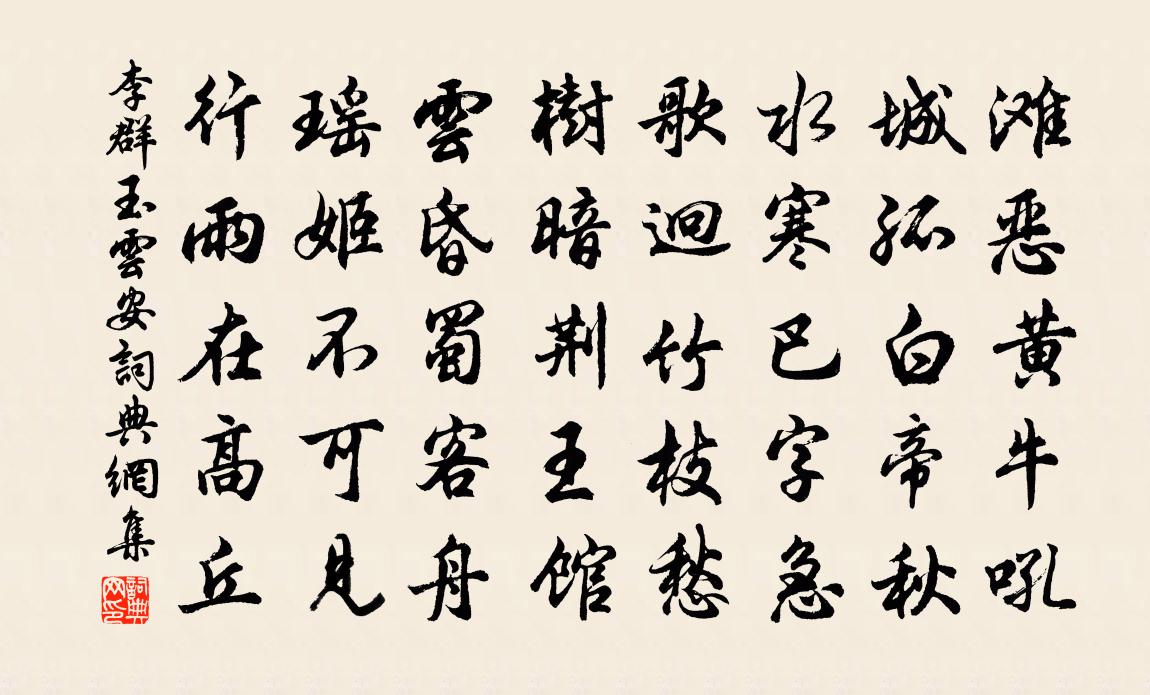 滩恶黄牛吼
城孤白帝秋
水寒巴字急
歌迥竹枝愁
樹暗荆王馆
雲昏蜀客舟
瑶姬不可見
行雨在高丘
李群玉雲安詞典網集
詞典網印